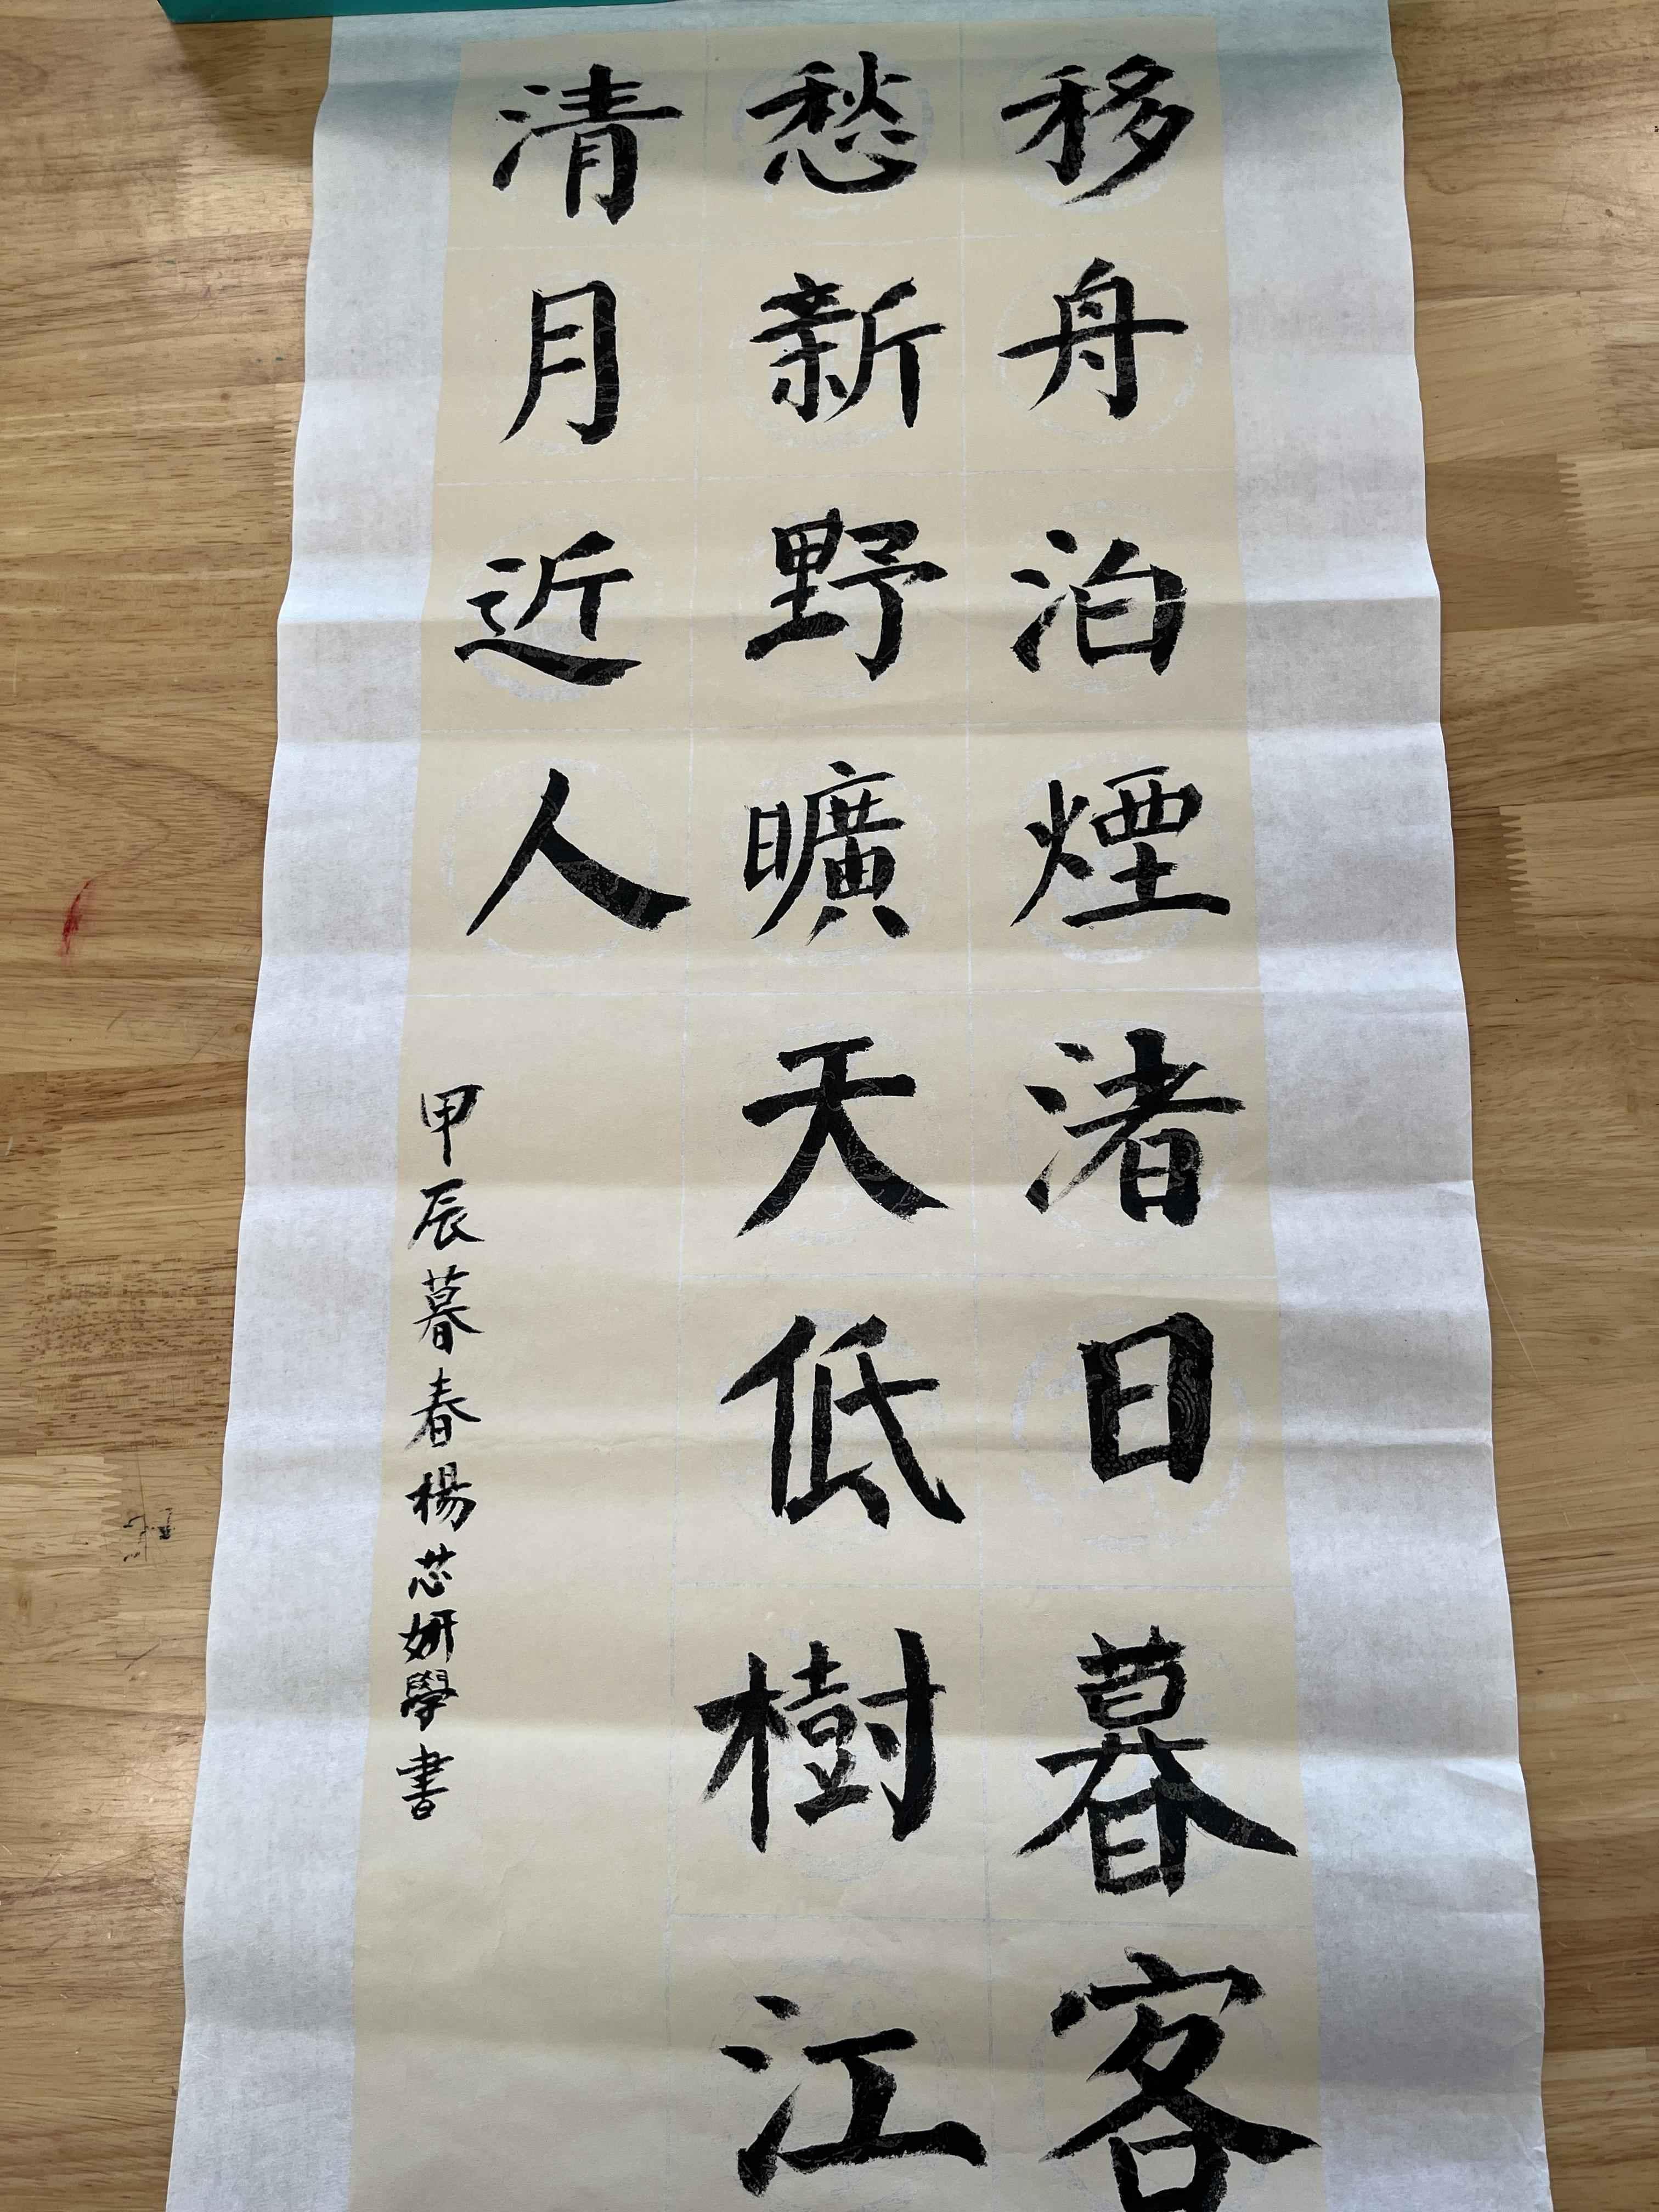 移舟泊煙渚日暮客
愁新野曠天低樹江
清月近人
甲辰暮春楊芯妍學書